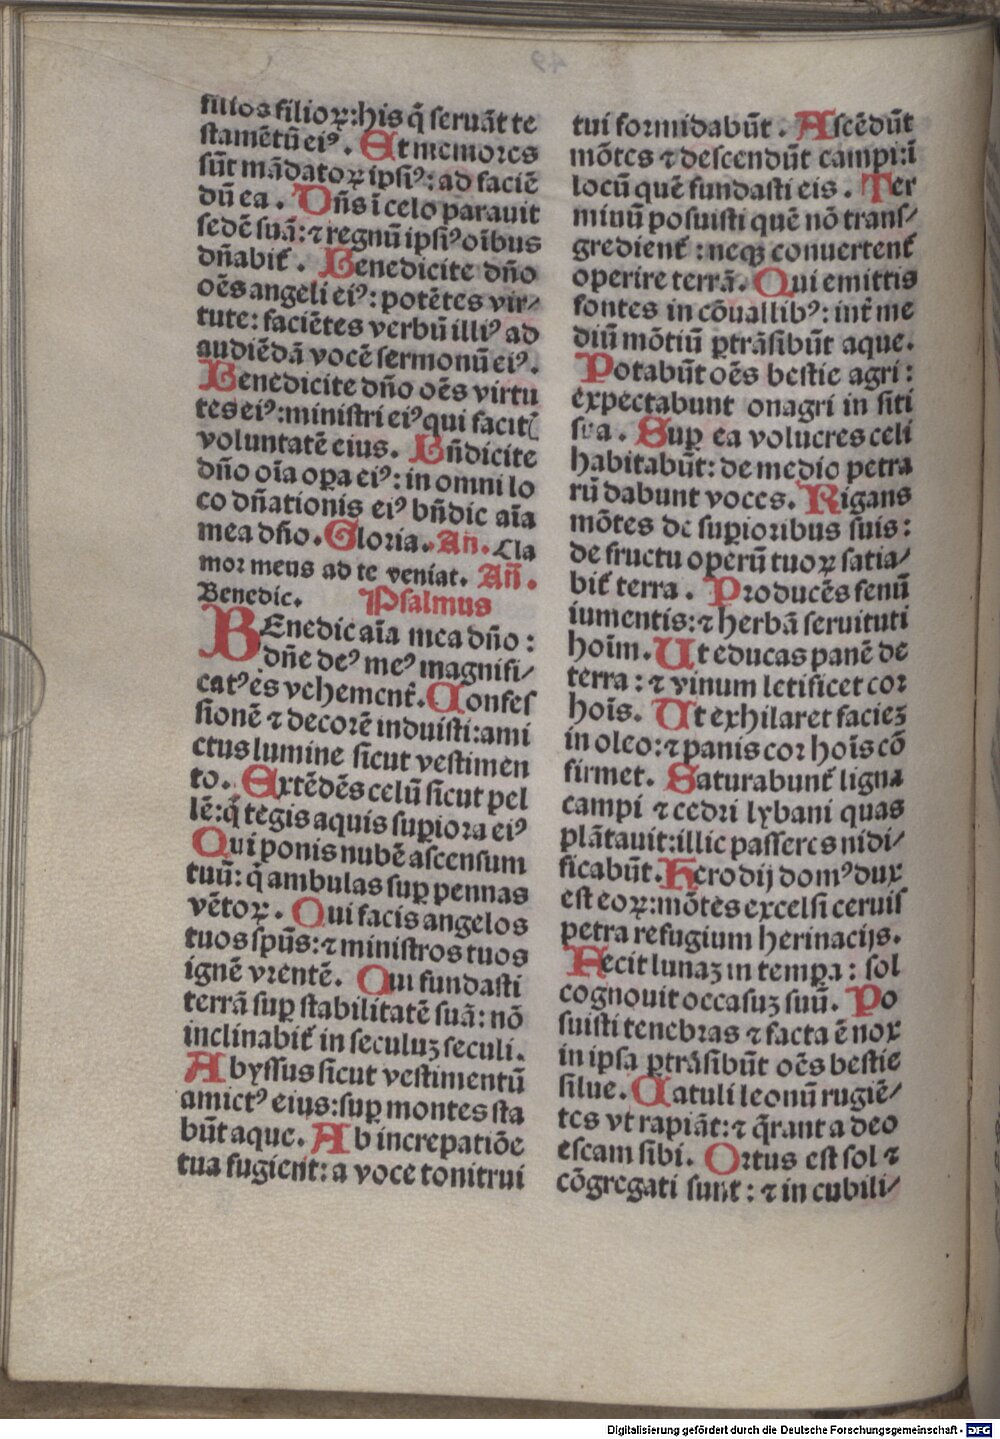 filios filioꝝ: his q̄ seruāt te
stamētū eiꝰ. Et memores
sūt mādatoꝝ ipsiꝰ: ad faciē
dū ea. Dn̄s ī celo parauit
sedē suā: ⁊ regnū ipsiꝰ oībus
dn̄abit᷑. Benedicite dn̄o
oēs angeli eiꝰ: potētes vir⸗
tute: faciētes verbū illiꝰ ad
audiēdā vocē sermonū eiꝰ.
Benedicite dn̄o oēs virtu
tes eiꝰ: ministri eiꝰ qui facit̄
voluntatē eius. Bn̄dicite
dn̄o oīa oꝑa eiꝰ: in omni lo
co dn̄ationis eiꝰ bn̄dic aīa
mea dn̄o. Gloria. An̄. Cla
mor meus ad te veniat. An̄.
Benedic. Psalmus
BEnedic aīa mea dn̄o:
dn̄e deꝰ meꝰ magnifi⸗
catꝰ es vehement᷑. Confes
sionē ⁊ decorē induisti: ami
ctus lumine sicut vestimen
to. Extēdēs celū sicut pel
lē: q̄ tegis aquis suꝑiora eiꝰ
Qui ponis nubē ascensum
tuū: q̄ ambulas suꝑ pennas
vētoꝝ. Qui facis angelos
tuos spūs: ⁊ ministros tuos
ignē vrentē. Qui fundasti
terrā suꝑ stabilitatē suā: nō
inclinabit᷑ in seculuꝫ seculi.
Abyssus sicut vestimentū
amictꝰ eius: suꝑ montes sta
būt aque. Ab increpatiōe
tua fugient: a voce tonitrui
tui formidabūt. Ascēdūt
mōtes ⁊ descendūt campi: ī
locū quē fundasti eis. Ter
minū posuisti quē nō trans⸗
gredient᷑: neqꝫ conuertent᷑
operire terrā. Qui emittis
fontes in cōuallibꝰ: int᷑ me
diū mōtiū ꝑtrāsibūt aque.
Potabūt oēs bestie agri:
expectabunt onagri in siti
sua. Suꝑ ea volucres celi
habitabūt: de medio petra
rū dabunt voces. Rigans
mōtes de suꝑioribus suis:
de fructu operū tuoꝝ satia⸗
bit᷑ terra. Producēs fenū
iumentis: ⁊ herbā seruituti
hoīm. Ut educas panē de
terra: ⁊ vinum letificet cor
hoīs. Ut exhilaret facieꝫ
in oleo: ⁊ panis cor hoīs cō
firmet. Saturabunt᷑ ligna
campi ⁊ cedri lybani quas
plātauit: illic passeres nidi⸗
ficabūt. Herodij domꝰ dux
est eoꝝ: mōtes excelsi ceruis
petra refugium herinacijs.
Fecit lunaꝫ in temꝑa: sol
cognouit occasuꝫ suū. Po
suisti tenebras ⁊ facta ē nox
in ipsa ꝑtrāsibūt oēs bestie
silue. Catuli leonū rugiē⸗
tes vt rapiāt: ⁊ q̄rant a deo
escam sibi. Ortus est sol ⁊
cōgregati sunt: ⁊ in cubili⸗
Digitalisierung gefördert durch die Deutsche Forschungsgemeinschaft - DFG